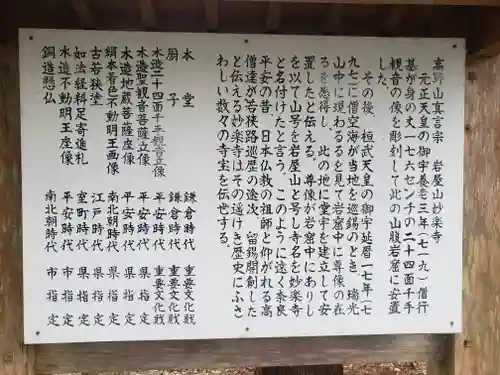 高野山真言宗　岩屋山妙楽寺
元正天皇の御宇養老三年（七一九）僧行
基が身の丈一七六センチの二十四面千手
観音の像を彫刻して此の山腹岩窟に安置
した。
その後、桓武天皇の御宇延暦一七年（七
九七）僧空海が当地を巡錫のとき、瑞光
山中に現わるるを見て岩窟中に尊像の在
るを感得し、此の地に堂宇を建立して安
置したと伝える。尊像が岩窟中にありし
を以て山号を岩屋山と号し寺名を妙楽寺
と名付けたと言う。このように遠く奈良
平安の昔、日本仏教の祖師と仰がれる高
僧達が若狭路巡歴の途次、留錫開創した
と伝える妙楽寺はその遥けき歴史にふさ
わしい数々の寺宝を伝世する。
本堂　鎌倉時代　重要文化財
厨子　鎌倉時代　重要文化財
木造二十四面千手観音像　平安時代　重要文化財
木造聖観音菩薩立像　平安時代　県指定
木造地蔵菩薩座像　平安時代　県指定
絹本着色不動明王画像　南北朝時代　県指定
古若狭塗　江戸時代　県指定
如法経料足寄進札　室町時代　県指定
木造不動明王座像　平安時代　市指定
銅造懸仏　南北朝時代　市指定